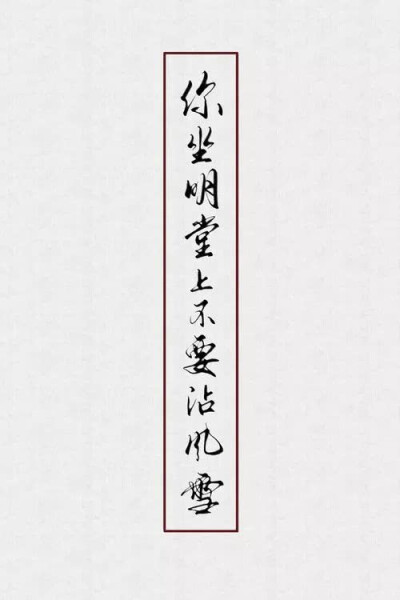 你坐明堂上不要沾风雪